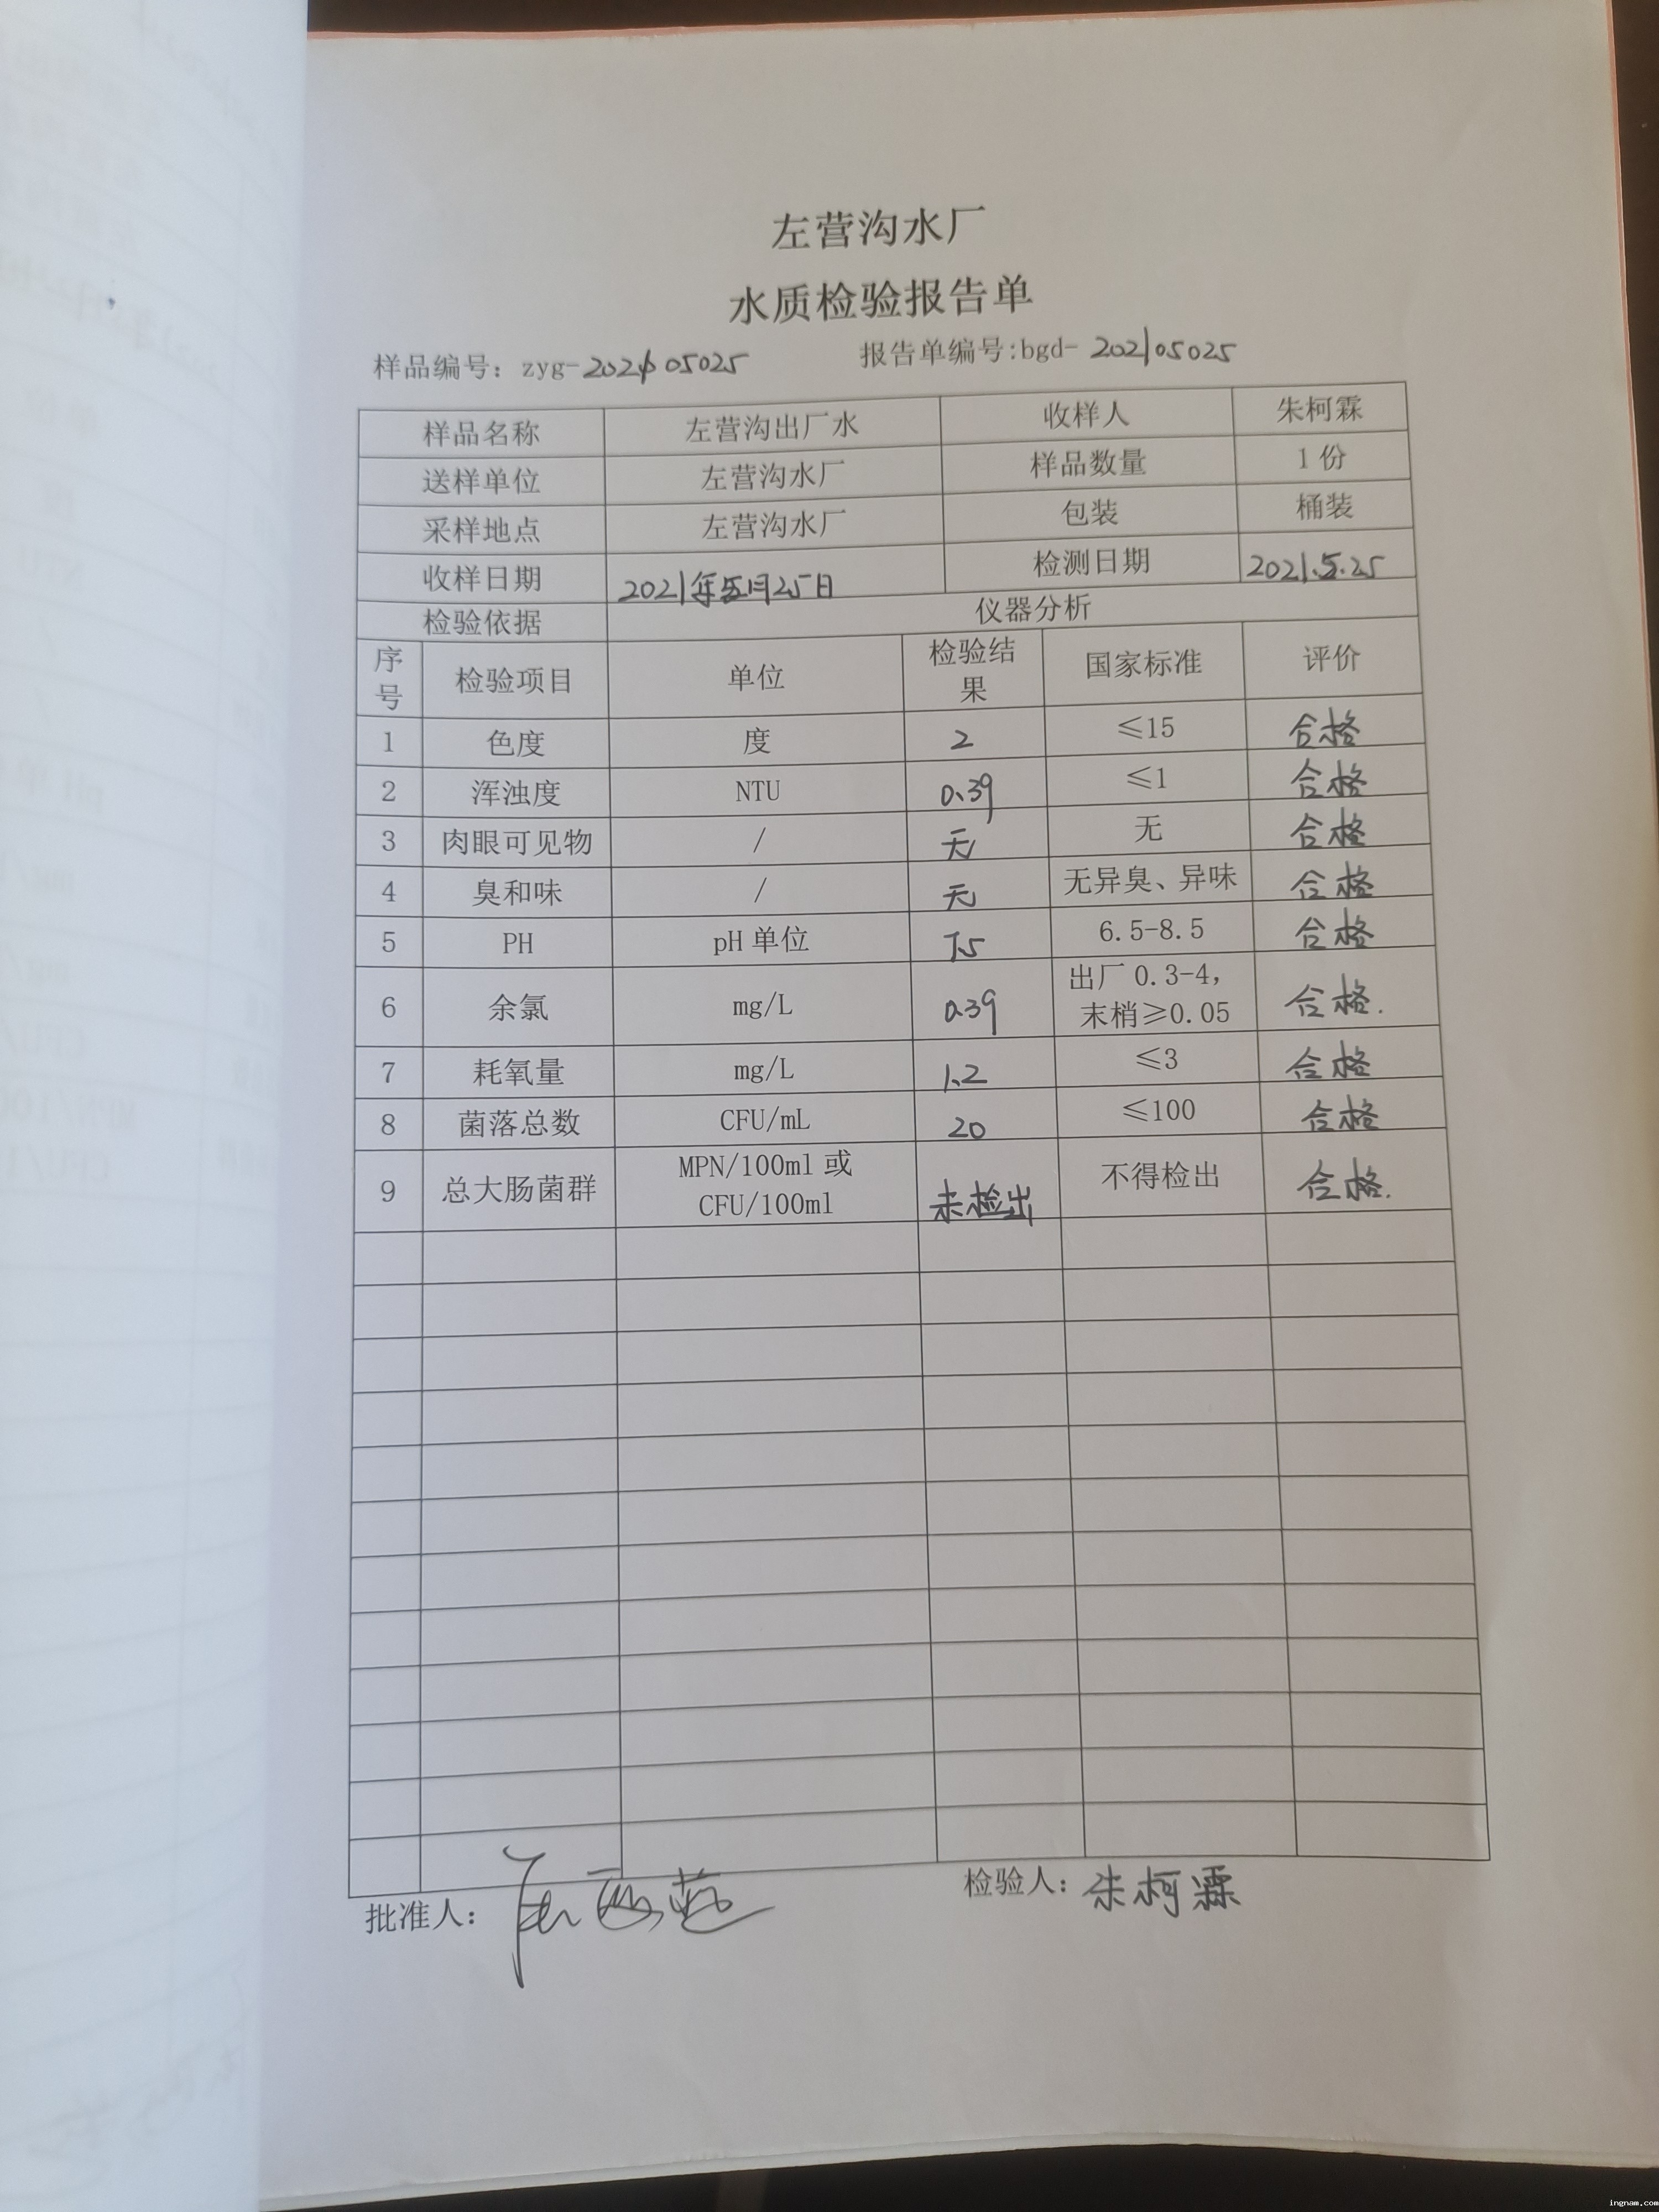 左营沟水厂
水质检验报告单
样品编号：zyg-202105025 报告单编号:bgd-202105025
样品名称 左营沟出厂水 收样人 朱柯霖
送样单位 左营沟水厂 样品数量 1份
采样地点 左营沟水厂 包装 桶装
收样日期 2021年5月25日 检测日期 2021.5.25
检验依据 仪器分析
序号 检验项目 单位 检验结果 国家标准 评价
1 色度 度 2 ≤15 合格
2 浑浊度 NTU 0.39 ≤1 合格
3 肉眼可见物 / 无 无 合格
4 臭和味 / 无 无异臭、异味 合格
5 PH pH单位 7.5 6.5-8.5 合格
6 余氯 mg/L 0.39 出厂0.3-4，末梢≥0.05 合格.
7 耗氧量 mg/L 1.2 ≤3 合格
8 菌落总数 CFU/mL 20 ≤100 合格
9 总大肠菌群 MPN/100ml或CFU/100ml 未检出 不得检出 合格.
批准人： 检验人：朱柯霖
ingnam.com